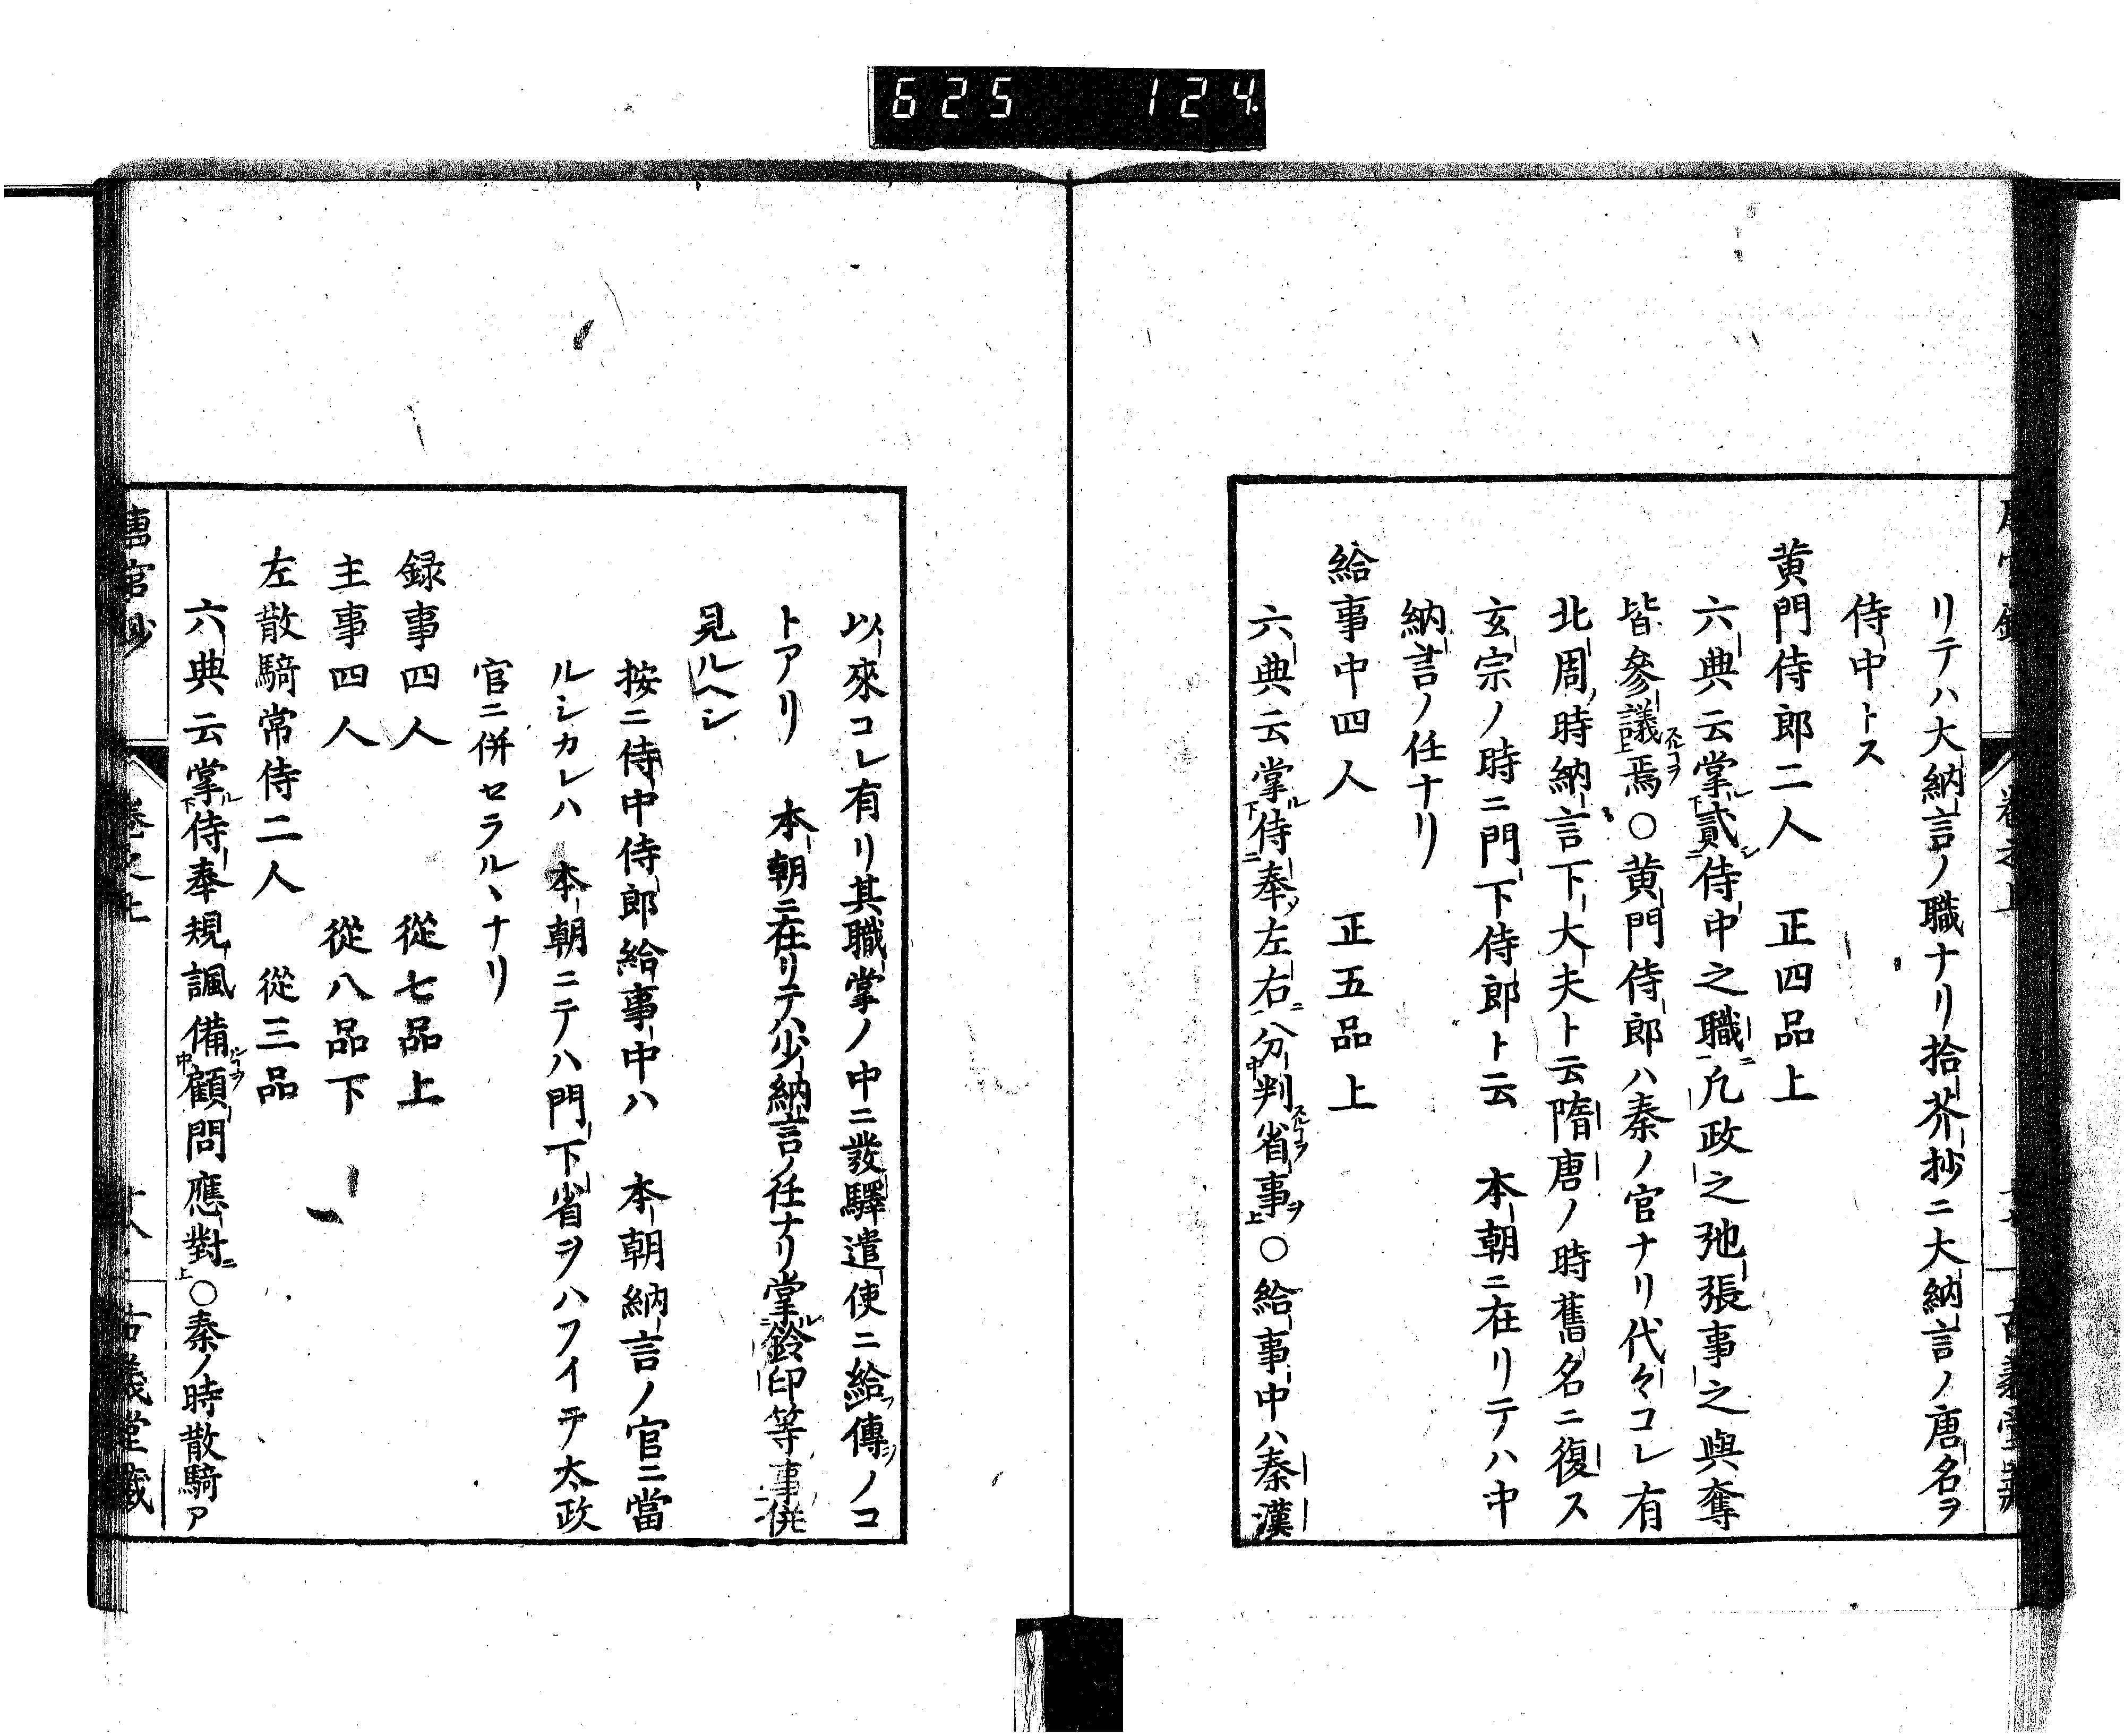 625 124
リテハ大納言ノ職ナリ拾芥抄ニ大納言ノ唐名ヲ
侍中トス
黄門侍郎二人 正四品上
六典云掌ル下貳シ二侍中之職ニ一凡政之弛張事之與奪
皆參議上焉スルコヲ〇黄門侍郎ハ秦ノ官ナリ代々コレ有
北周ノ時納言下大夫ト云隋唐ノ時舊名ニ復ス
玄宗ノ時ニ門下侍郎ト云 本朝ニ在リテハ中
納言ノ任ナリ
給事中四人 正五品上
六典云掌ル下侍二奉ソ左右ニ一分中判省事ヲ上スルコヲ〇給事中ハ秦漢
以來コレ有リ其職掌ノ中ニ發驛遣使ニ給フ傳ヲノコ
トアリ 本朝ニ在リテハ少納言ノ任ナリ掌ル二鈴印等事一併
見ルヘシ
按ニ侍中侍郎給事中ハ 本朝納言ノ官ニ當
ルシカレハ 本朝ニテハ門下省ヲハフイテ太政
官ニ併セラルヽナリ
録事四人 從七品上
主事四人 從八品下
左散騎常侍二人 從三品
六典云掌ル下侍奉規諷備中顧問應對ニ上〇秦ノ時散騎ア
唐官鈔 卷之上 古義堂藏